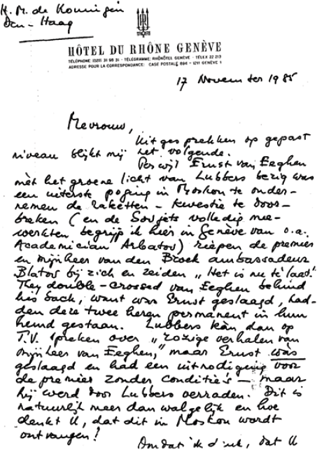 H.M. de Koningin
Den-Haag
HÔTEL DU RHÔNE GENÈVE
17 November 1985
Mevrouw,
Uit gesprekken op gepast
niveau blijkt mij het volgende.
Terwijl Ernst van Eeghen
met het groene licht van Lubbers bezig was
een uiterste poging in Moskou te onder-
nemen de raketten-kwestie te door-
breken (en de Sovjets volledig mee-
werkten begrijp ik hier in Genève van o.a.
Academician Arbatov) riepen de premier
en mijnheer van den Broek ambassadeur
Blatov bij zich en zeiden "Het is nu te laat."
They double-crossed van Eeghen behind
his back, want was Ernst geslaagd, had-
den deze twee heren permanent in hun
hemd gestaan. Lubbers kan dan op
T.V. spreken over "zozige verhalen van
mijnheer van Eeghen," maar Ernst was
geslaagd en had een uitnodiging voor
de premier zonder conditie's — maar
hij werd door Lubbers verraden. Dit is
natuurlijk meer dan walgelijk en hoe
denkt U, dat dit in Moskou wordt
ontvangen!
Omdat ik denk, dat U